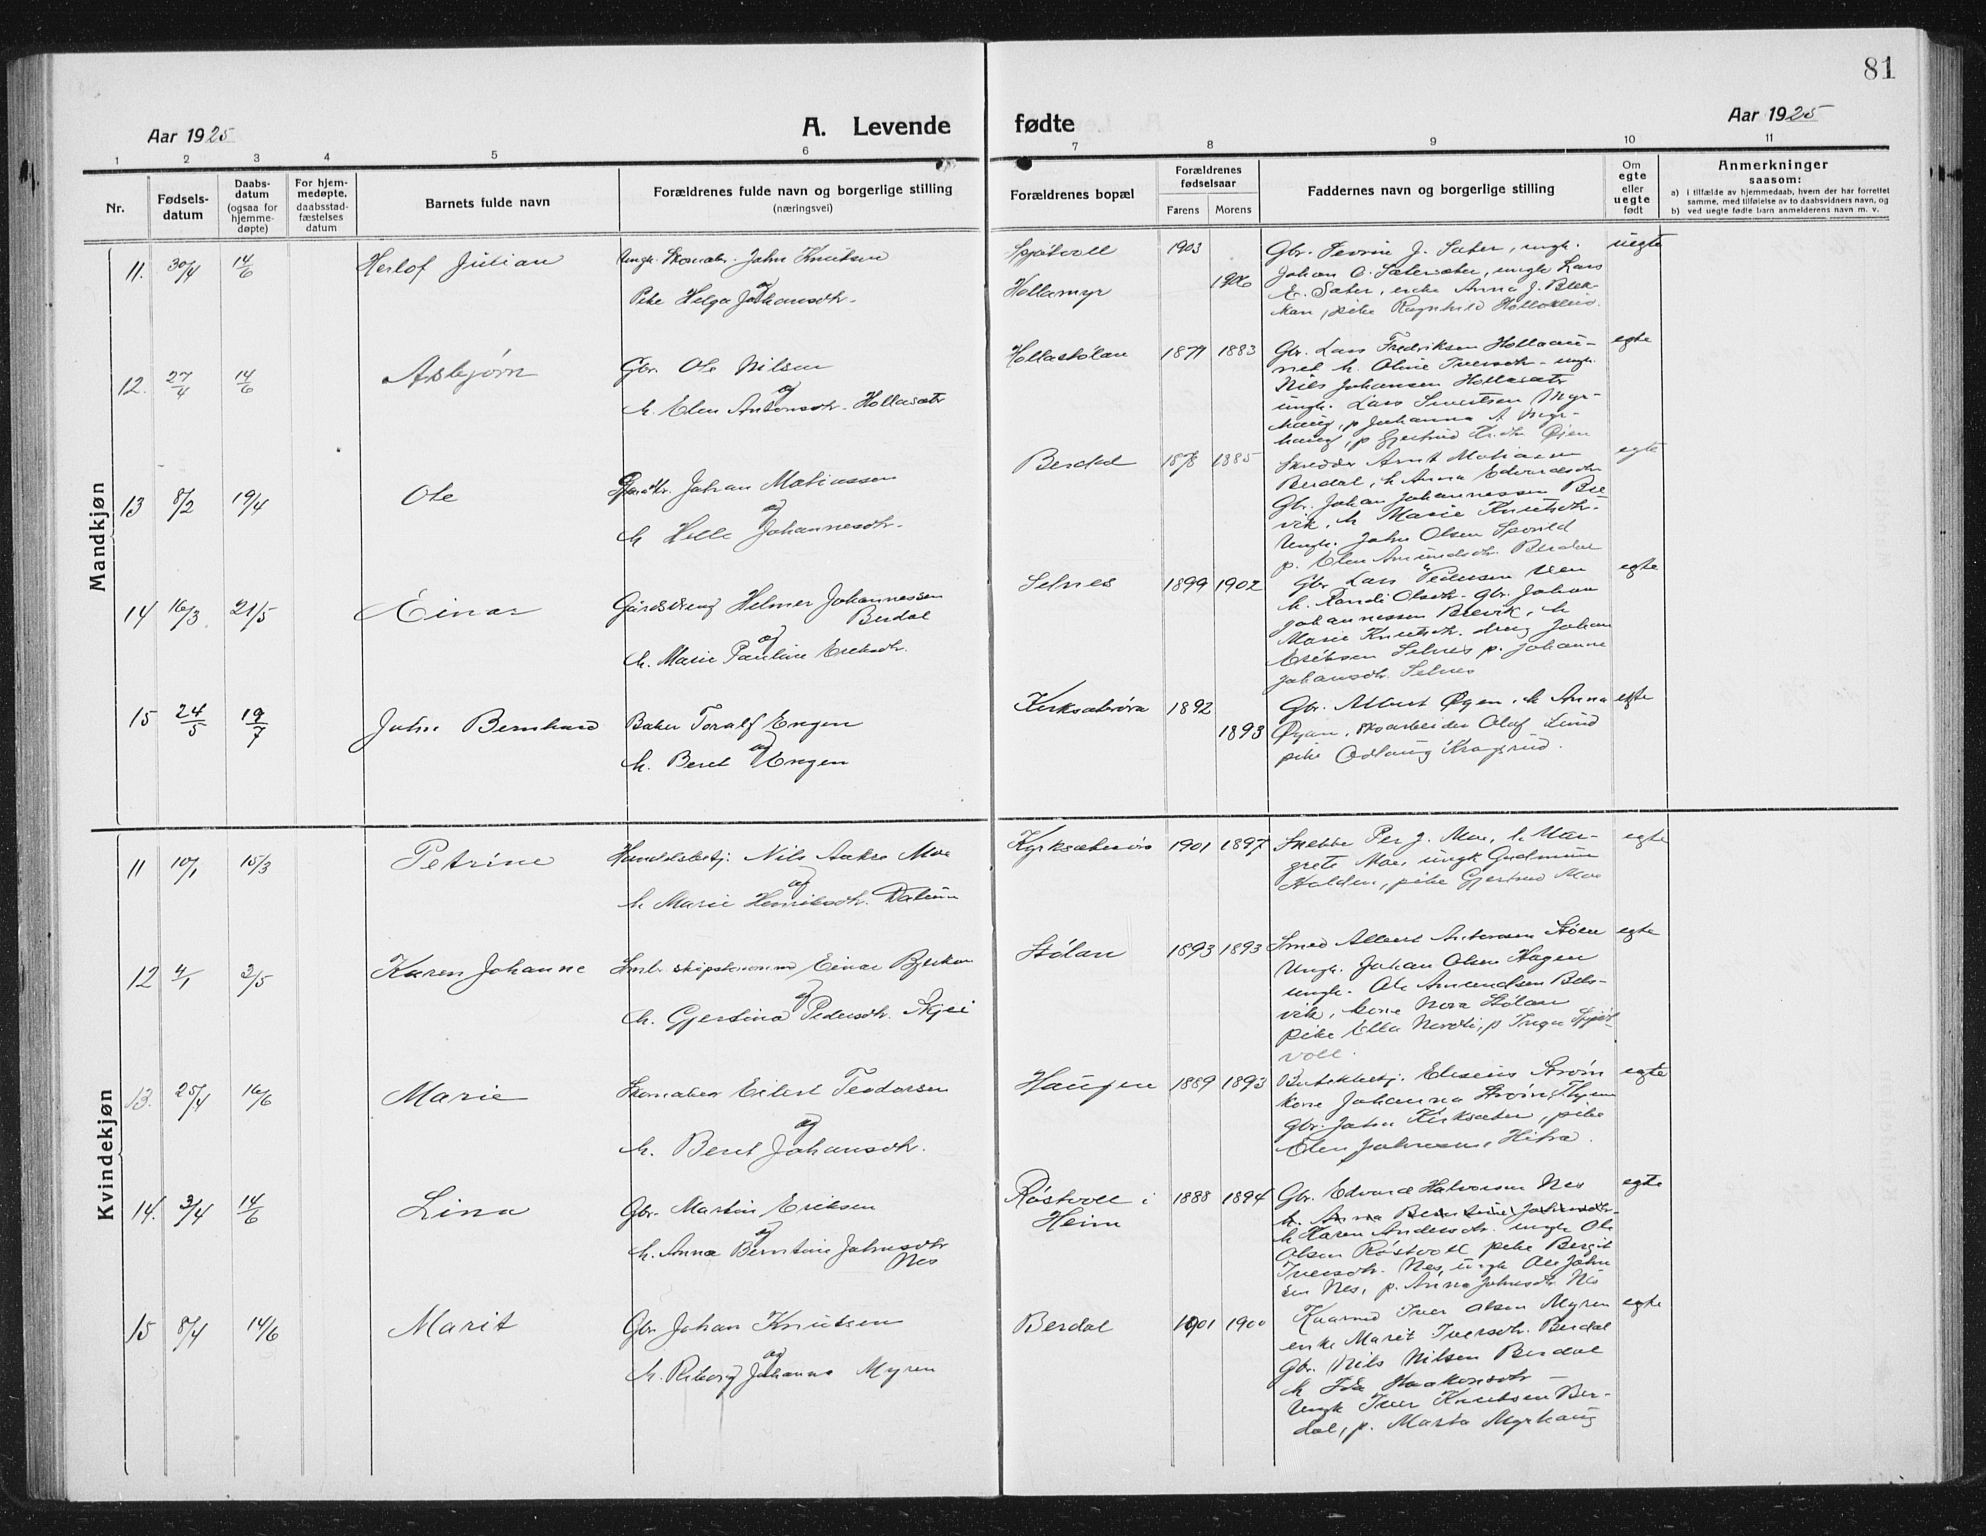 81
Aar 1925
A. Levende fødte
Aar 1925
1 2 3 4 5 6 7 8 9 10 11
Nr.
Fødsels-
datum
Daabs-
datum
(ogsaa for
hjemme-
døpte)
For hjem-
medøpte,
daabsstad-
fæstelses
datum
Barnets fulde navn
Forældrenes fulde navn og borgerlige stilling
(næringsvei)
Forældrenes bopæl
Forældrenes
fødselsaar
Farens Morens
Faddernes navn og borgerlige stilling
Om
egte
eller
uegte
født
Anmerkninger
saasom:
a) i tilfælde av hjemmedaab, hvem der har forrettet
samme, med tilføielse av to daabsvidners navn, og
b) ved uegte fødte barn anmelderens navn m. v.
Mandkjøn
11. 30/4 14/6 Herlof Julian
Ungk. Skomaker John Knutsen
og
Pike Helga Johansdtr.
Spjøtvoll 1903
Hollamyr 1906
Johan O. Sætersæter, ungk. Lars
E. Sæter, enke Anna J. Blek-
kan, pike Ragnhild
uegte
12. 27/4 14/6 Asbjørn
Gbr. Ole Nilsen
og
h. Elen Antonsdtr. Hollasætr
Hollastølan 1879 1883
Gbr. Lars Fredriksen
h. Oline Iversdtr. ungk.
Nils Johansen Hollasætr
ungk. Lars Sivertsen Myr-
haug, p. Johanna A. Myr-
haug, p. Gjertrud Øien
egte
13 8/2 19/4 Ole
Johan Matiassen
og
h. Helle Johannesdtr.
Berdal 1878 1885
Skredder Arnt
Berdal, h. Anna Edvardsdtr.
Gbr. Johan Johannessen Bre-
vik, h. Marie Knutsdtr.
Ungk. John Olsen
p. Elen Amundsdtr. Berdal
egte
14 16/3 21/5 Einar
Gårdsdreng Helmer Johannessen
Berdal
og
h. Marie Pauline Eriksdtr.
Selnes 1899 1902
Gbr. Lars Pedersen
h. Randi Olsdtr. Gbr. Johan
Johannessen Brevik, h.
Marie Knutsdtr. dreng Johan
Eriksen Selnes p. Johanne
Johansdtr. Selnes
egte
15 24/5 19/7 John Bernhard
Baker Toralf Engen
og
h. Beret Engen
Kirksæterøra 1892
1893
Gbr. Albert Øyen, h. Anna
Øyan, skoarbeider Olaf Lund
pike Odlaug Krogsrud.
egte
Kvindekjøn
11 10/1 15/3 Petrine
Handelsbetj. Nils Aakre Moe
og
h. Marie Henriksdtr. Dalum
Kyrksæterøra 1901 1897
Snekker Per J. Moe, h. Mar-
grete Moe, ungk Gudmun
Halden, pike Gjertrud Moe
egte
12 4/1 3/5 Karen Johanne
Einar Bjerkan
og
h. Gjertina Pedersdtr.
Stølan 1893 1893
Smed Albert Antonsen Stølen
Ungk. Johan Olsen Hagen
ungk. Ole Amundsen Bels-
vik, kone Nora Stølan
pike Ella p. Inga Spjøt-
voll.
egte
13. 25/4 16/6 Marie
Skomaker Eilert Teodorsen
og
h. Beret Johansdtr.
Haugen 1889 1893
Butikkbetj. Eliseus Strøm
kone Johanna Strøm,
gbr. John Kirksæter, pike
Elen Johnsen, Hitra.
egte
14. 3/4 14/6 Lina
Gbr. Martin Eriksen
og
h. Anna Berntine Johnsdtr
Nes
Røstvoll i
Heim
1888 1894
Gbr. Edvard Halvorsen Nes
h. Anna Berntine Johnsdtr.
h Karen Andersdtr. ungk Ole
Olsen Røstvoll, pike Bergit
Iversdtr. Nes, ungk Ole John
sen Nes, p. Anna Johnsdtr. Nes
egte
15 8/4 14/6 Marit
Gbr Johan Knutsen
og
h. Johanna Myren
Berdal 1901 1900
Kaarmd Iver Olsen Myren
enke Marit Iversdtr. Berdal
Gbr. Nils Nilsen Berdal
h Ida Haakonsdtr
Ungk Iver Knutsen Ber-
dal, p. Marta Myrhaug
egte